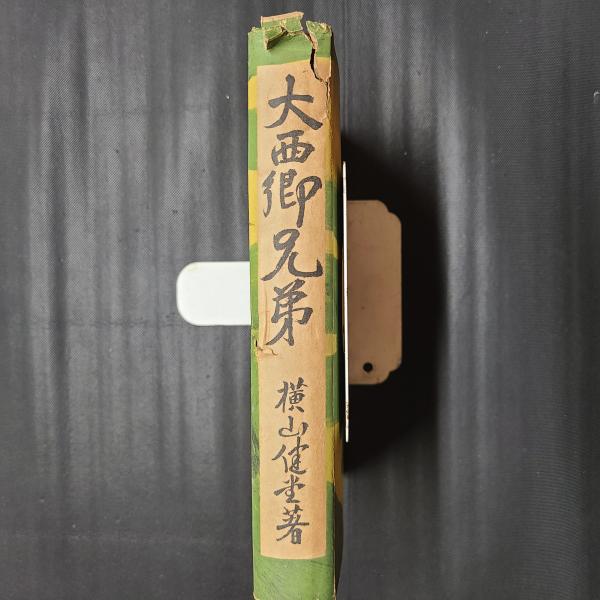 大西郷兄弟
横山健堂著